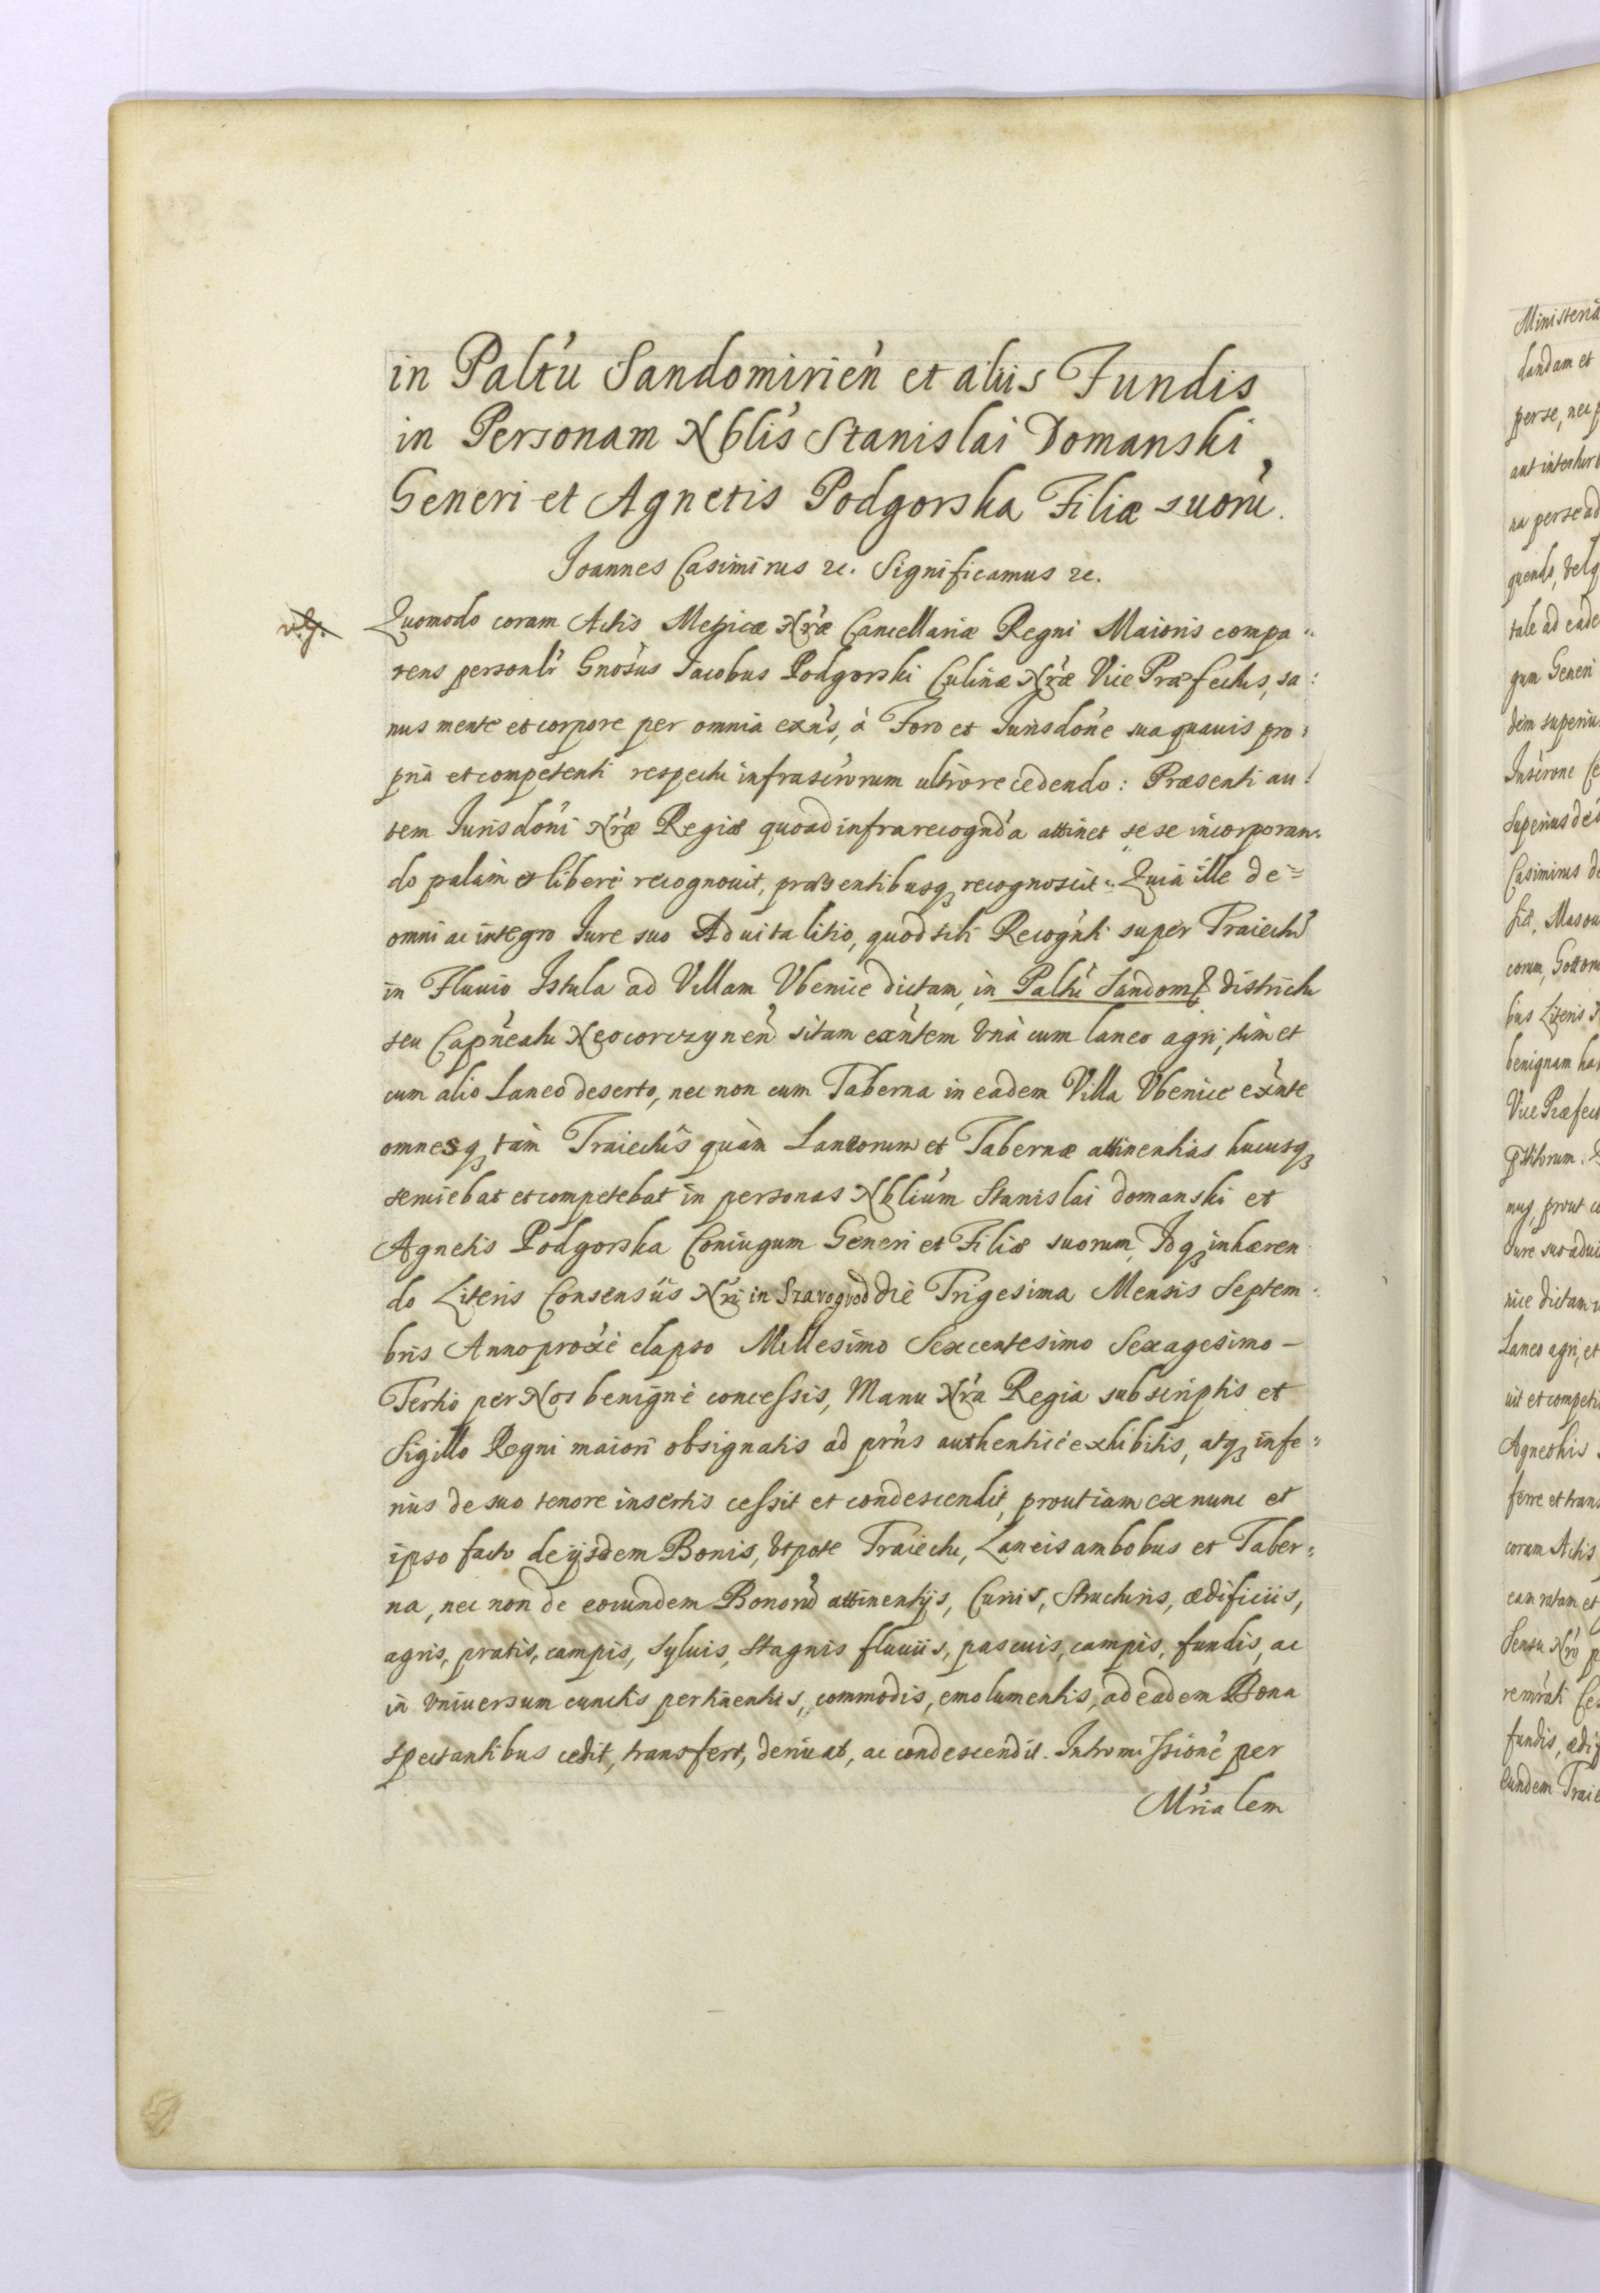 in Paltu Sandomirien et aliis Fundis
in Personam Nblis Stanislai Domanski
Generi et Agnetis Podgorska Filiæ suoru.
Joannes Casimirus &c. Significamus &c.
Quomodo coram Actis Metricæ Nræ Cancellariæ Regni Maioris compa-
rens personlr Gnosus Jacobus Podgorski Culinæ Nræ Vice Præfectus, sa-
nus mente et corpore per omnia exns, à Foro et Jurisdone sua quavis pro-
pria et competenti respectu infrascrorum ultro recedendo: Præsenti au-
tem Jurisdoni Nræ Regiæ quoad infra recognda attinet sese incorporan-
do palàm et liberè recognovit, præsentibusq recognoscit: Quia ille de
omni ac integro Jure suo Advitalitio, quod sibi Recognti super Traiectu
in Fluvio Istula ad Villam Vbenice dictam, in Paltu Sandom: districtu
seu Capneatu Neocorczynen sitam exntem vnà cum laneo agri, tùm et
cum alio Laneo deserto, nec non cum Taberna in eadem Villa Vbenice exnte
omnesq tàm Traiectûs quàm Laneorum et Tabernæ attinentias hucusq
serviebat et competebat in personas Nblium Stanislai Domanski et
Agnetis Podgorska Coniugum Generi et Filiæ suorum, Idq inhæren-
do Literis Consensûs Nri in Szavogrod die Trigesima Mensis Septem-
bris Anno proxè elapso Millesimo Sexcentesimo Sexagesimo-
Tertio per Nos benignè concessis, Manu Nra Regia subscriptis et
Sigillo Regni maiori obsignatis ad prns authenticè exhibitis, atq infe-
rius de suo tenore insertis cessit et condescendit, prout iam ex nunc et
ipso facto de ijsdem Bonis, vtpote Traiectu, Laneis ambobus et Taber-
na, nec non de eorundem Bonoru attinentijs, Curiis, Structuris, ædificiis,
agris, pratis, campis, sylvis, stagnis fluviis, pascuis, campis, fundis, ac
in vniversum cunctis pertinentiis, commodis, emolumentis, ad eadem Bona
spectantibus cedit, transfert, derivat, ac condescendit. Intromissione per
Mrialem